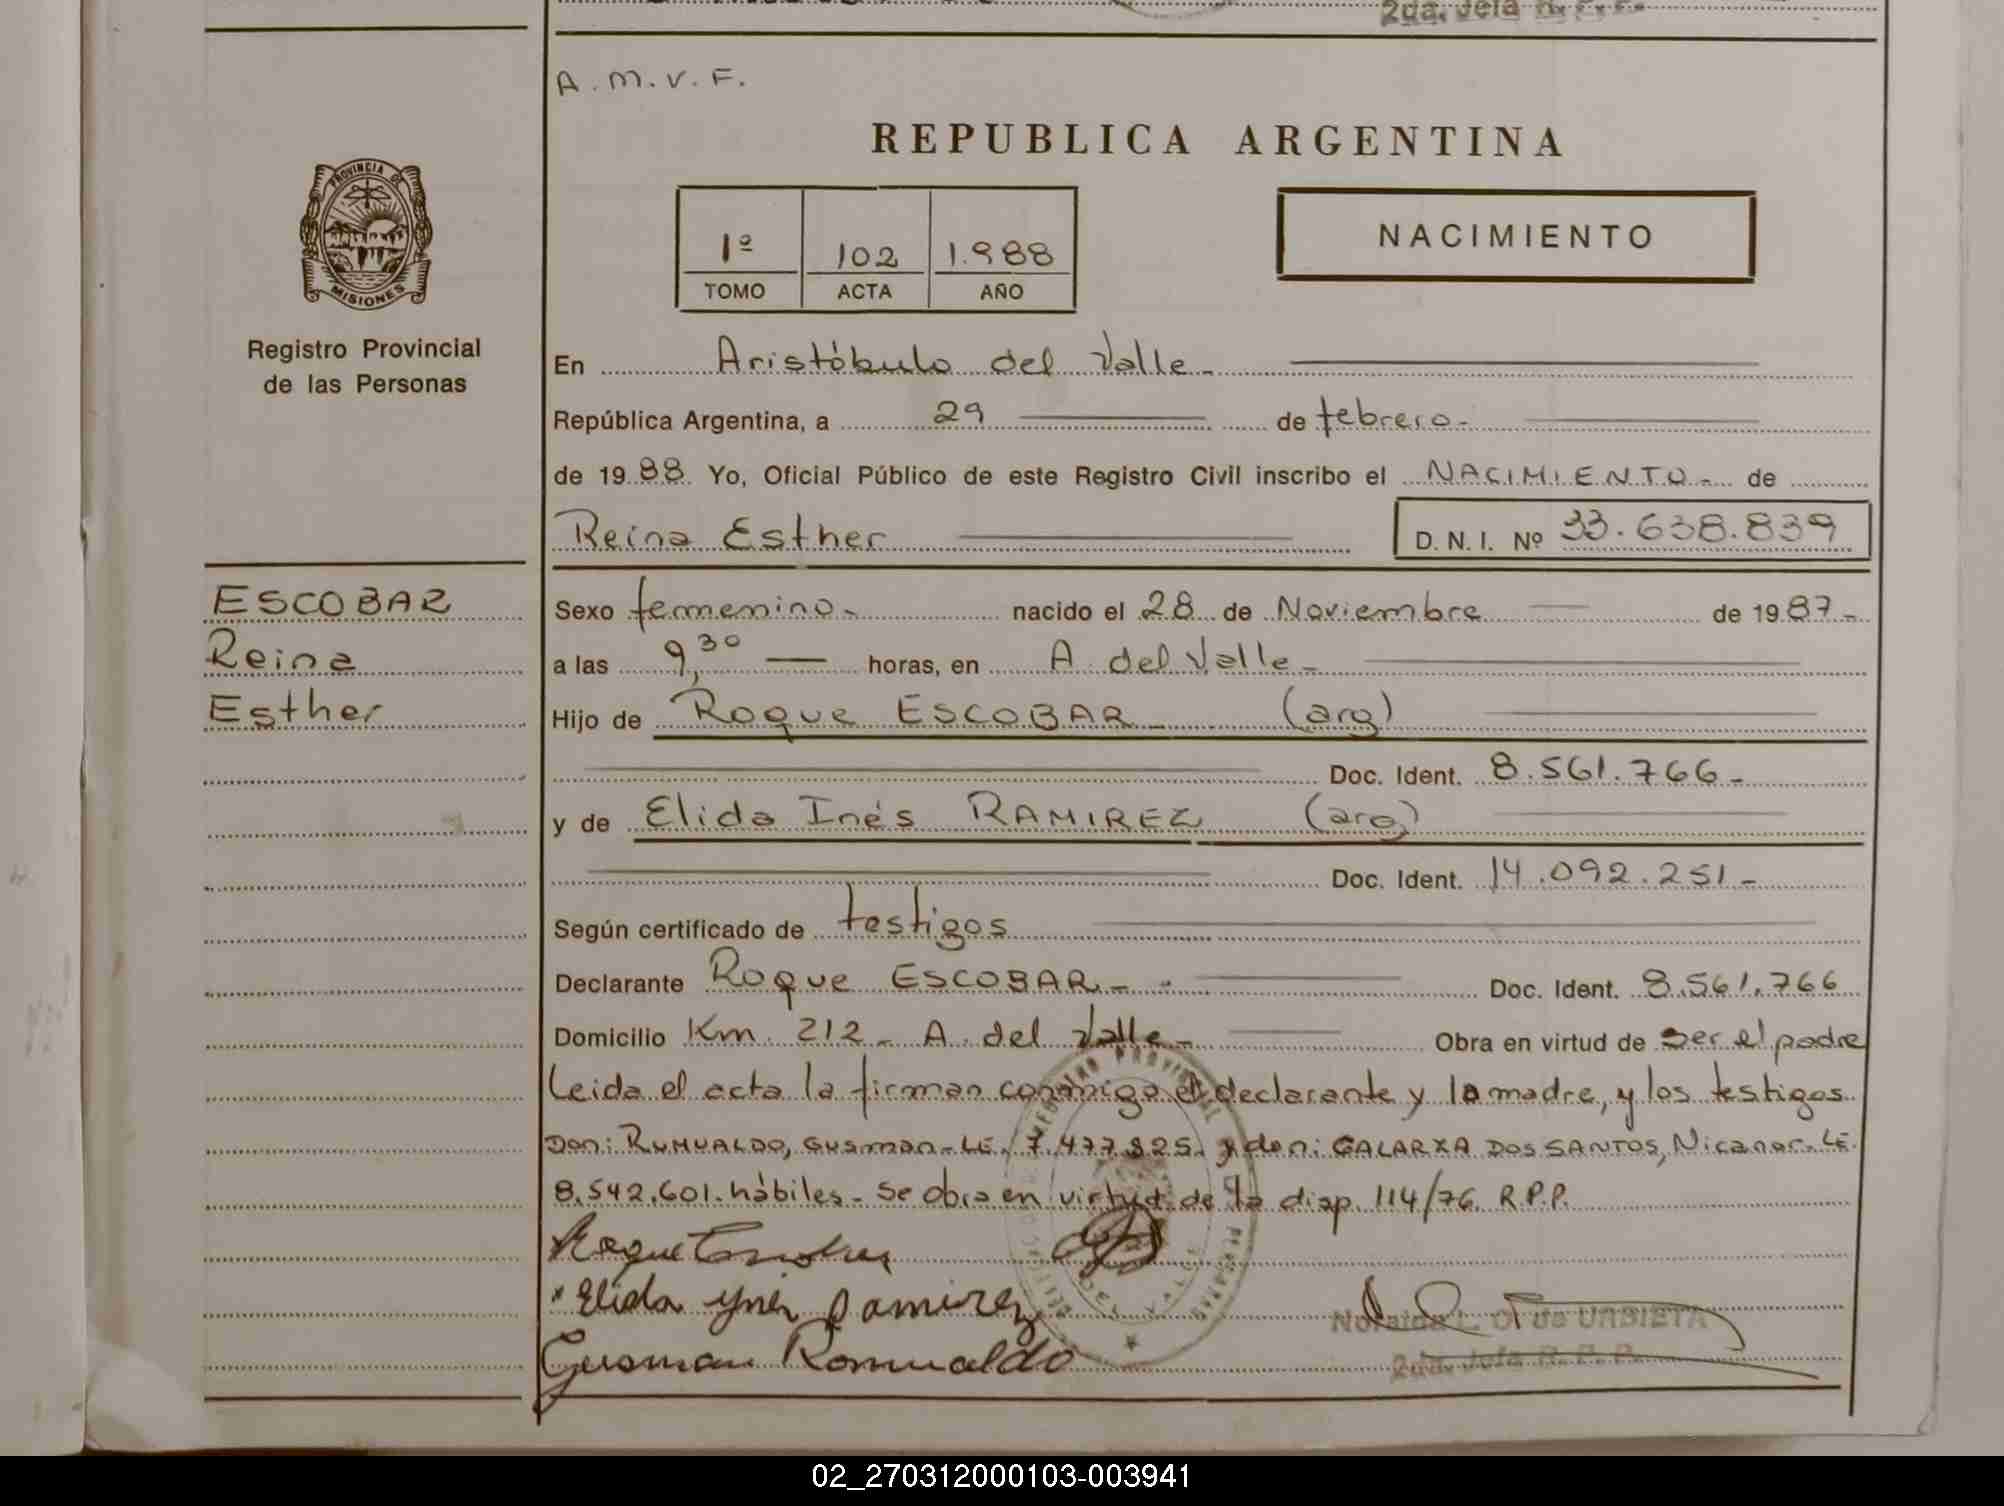 2da. Jefa R. P. P.
A.M.V.F.
REPUBLICA ARGENTINA
PROVINCIA DE
MISIONES
Registro Provincial
de las Personas
1º 102 1.988
TOMO ACTA AÑO
NACIMIENTO
En Aristóbulo del Valle-
República Argentina, a 29 de febrero-
de 1988 Yo, Oficial Público de este Registro Civil inscribo el NACIMIENTO- de
Reina Esther D. N. I. Nº 33.638.839
ESCOBAR
Reina
Esther
Sexo femenino- nacido el 28 de Noviembre de 1987-
a las 9,30 — horas, en A del Valle-
Hijo de Roque ESCOBAR- (arg)
Doc. Ident. 8.561.766-
y de Elida Inés RAMIREZ (arg)
Doc. Ident. 14.092.251-
Según certificado de testigos
Declarante Roque ESCOBAR- Doc. Ident. 8.561.766
Domicilio Km. 212- A. del Valle- Obra en virtud de ser el padre
Leida el acta la firman conmigo el declarante y la madre, y los testigos
Don: RUMUALDO, GUSman-LE. 7.477.825. y don: GALARXA DOS SANTOS, Nicanor-LE.
8.542.601.hábiles-Se obra en virtud de la disp. 114/76. R.P.P.
Roque Escobar
Elida ynés Ramirez
Gusman Romualdo
URBIETA
2da. Jefa R. P. P.
02_270312000103-003941